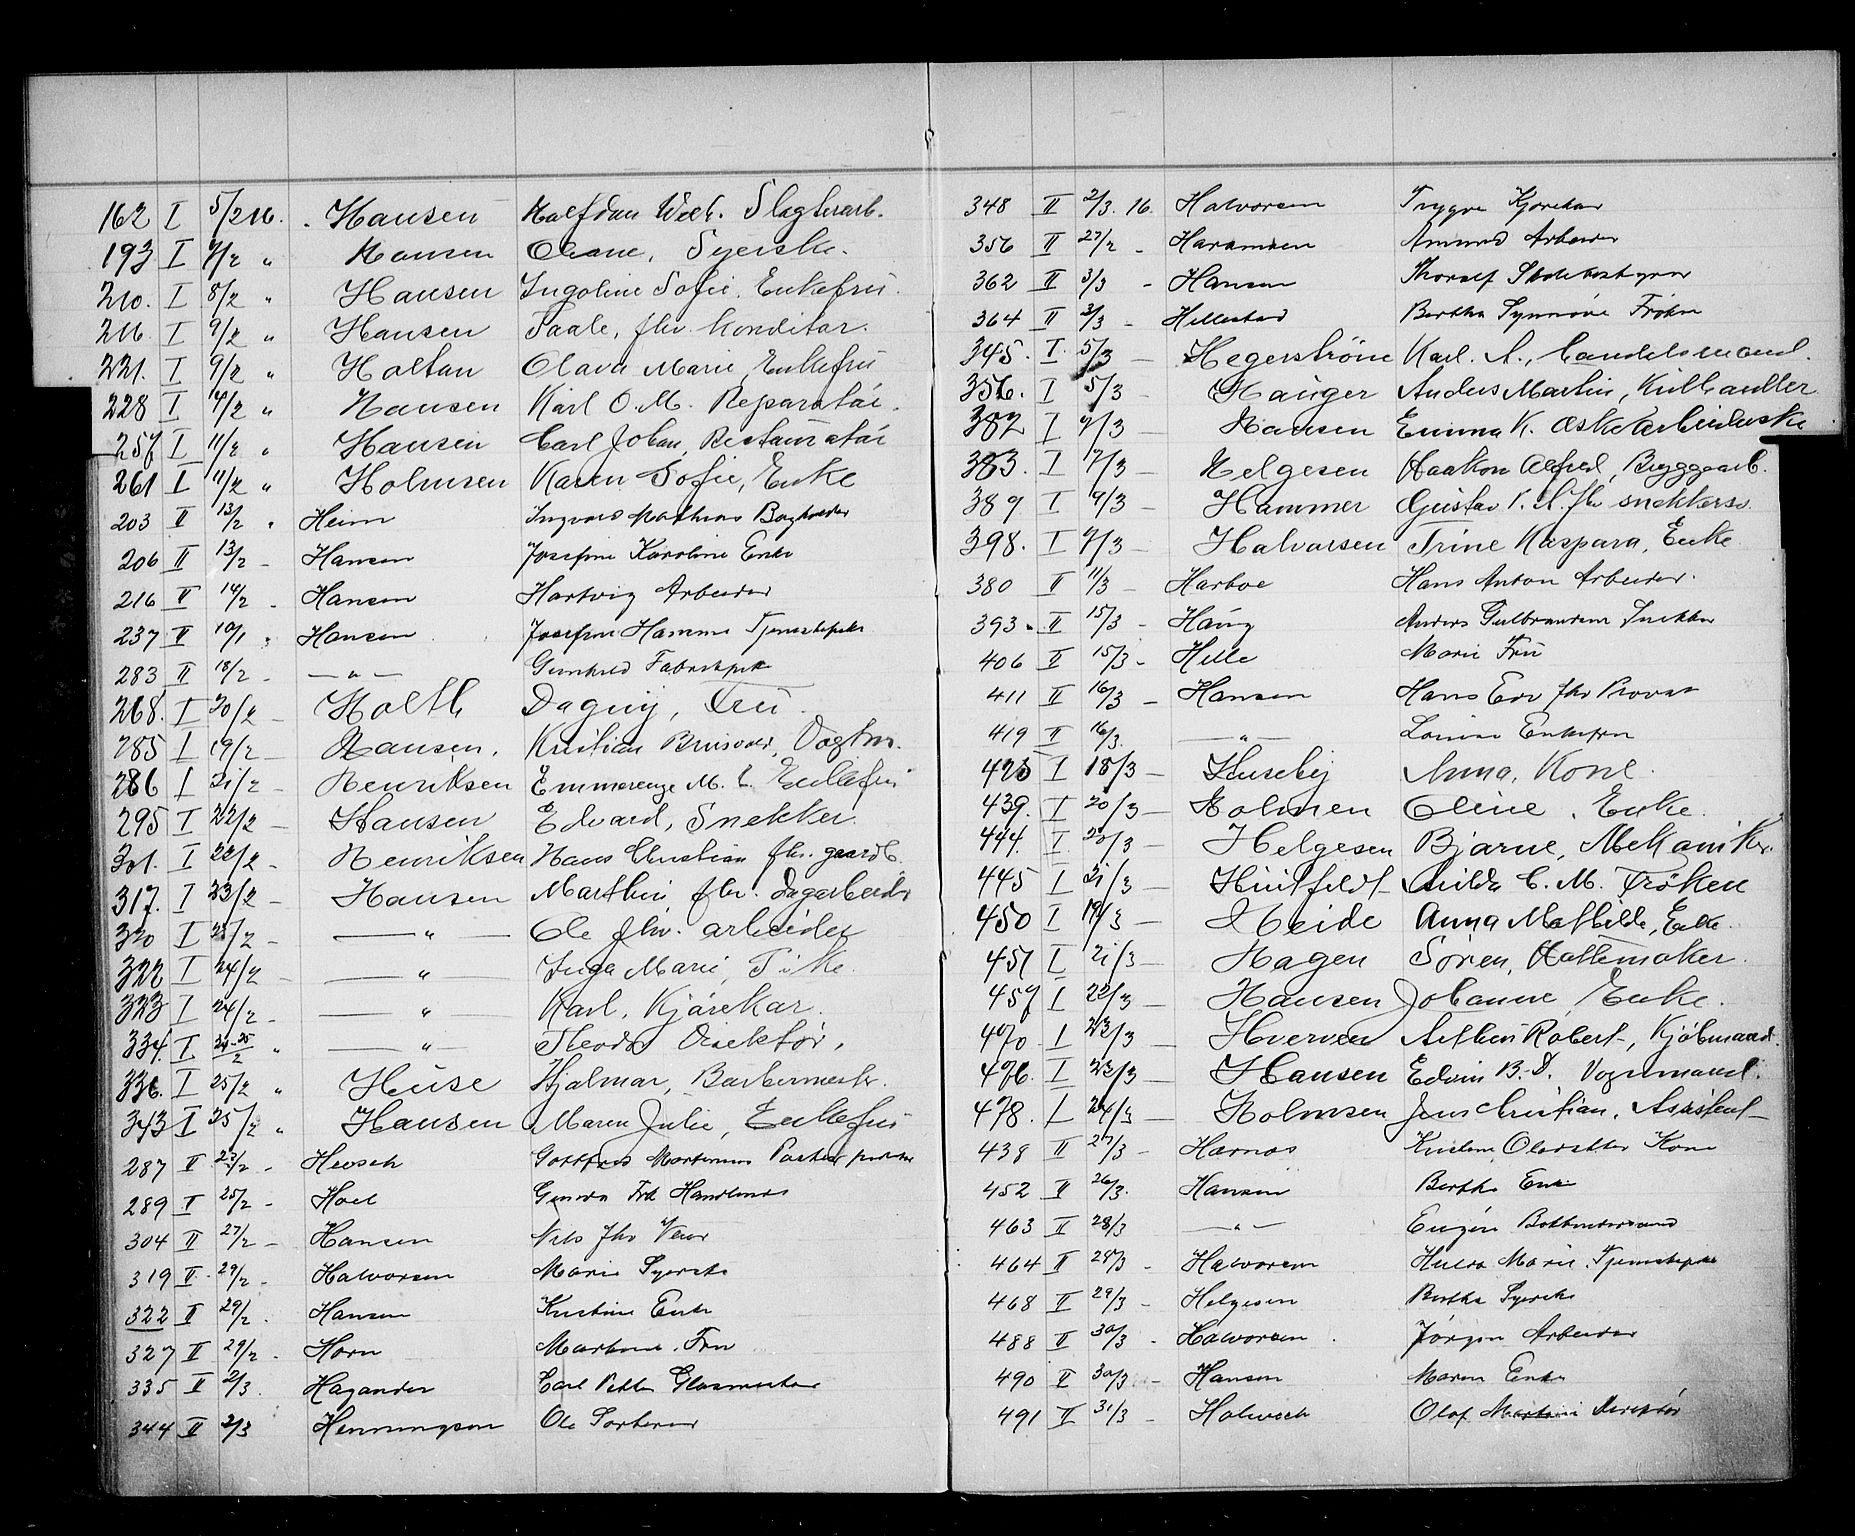 162 I 5/2 16. Hansen Halfdan Wilh. Slagterarb.
193 I 7/2 " Hansen Oleane, Syerske.
210. I 8/2 " Hansen Ingoline Sofie, Enkefru.
216. I 9/2 " Hansen Taale, fhv. Konditor.
221. I 9/2 " Holtan Olava Marie, Enkefru
228 I 10/2 " Hansen Karl O. M. Reparatør.
257 I 11/2 " Hansen Carl Johan, Restauratør
261 I 11/2 " Holmsen Karen Sofie, Enke
203 II 13/2 " Heim Ingvald Mathias Bogholder
206 II 13/2 - Hansen Josefine Karoline Enke
216 II 14/2 - Hansen Hartvig Arbeider
237 II 10/1 Hansen Josefine Hamme Tjenestepike
283 II 18/2 - — " — Gunhild Fabrikpike
268. I 20/2 - Holth Dagny, Fru.
285 I 19/2 - Hansen, Kristian Brusvold, Vogtm.
286 I 21/2 - Henriksen Emmerenze M. L. Enkefru
295 I 22/2 - Hansen Edvard, Snekker.
301. I 22/2 - Henriksen Hans Christian fhv. gaardb.
317. I 23/2 - Hansen Marthin fhv. Dagarbeider
320 I 25/2 - — " — Ole fhv. arbeider
322 I 24/2 - — " — Inga Marie, Pike.
323 I 24/2 - — " — Karl, Kjørekar.
334. I 24-25/2 " — " — Theodor Direktør.
336. I 25/2 " Huse Hjalmar, Barbermester.
343 I 25/2 " Hansen Maren Julie, Enkefru
287 II 22/2 - Heosch Gottfred Martinius
289 II 25/2 - Hoel Ginevra Frk Handlende
304 II 27/2 - Hansen Nils fhv
319 II 29/2 - Halvorsen Marie Syerske
322 II 29/2. Hansen Kristine Enke
327 II 29/2 - Horn Martine, Fru
335 II 2/3. Hagander Carl Petter Glasmester
344 II 2/3 Henningsen Ole Sorterer
348 II 2/3. 16. Halvorsen Trygve Kjørekar
356 II 27/2 - Haramsen Amund Arbeider
362 II 3/3 - Hansen Thoralf Skolebestyrer
364 II 3/3 - Hellestad Bertha Synnøve Frøken
345. I. 5/3 — Hegerstrøm Karl. A., Handelsmand.
356. I 5/3 - Hauger Anders Martin, Kulhandler
382 I 9/3 — Hansen Emma K. Æskearbeiderske
383. I 7/3 — Helgesen Haakon Alfred, Bryggearb.
389 I 9/3 — Hammer Gustav K. A. fhv snekkersv.
398. I 9/3 — Halvorsen Trine Kaspara, Enke
380 II 11/3 - Harboe Hans Anton Arbeider.
393. II 15/3 - Haug Anders Gulbrandsen Snekker
406 II 15/3 - Helle Marie Fru
411 II 16/3 - Hansen Hans Edv fhv
419 II 16/3. — " — Louise Enkefru
425 I 18/3 — Huseby Anna, Kone.
439. I 20/3 — Holmen Oline, Enke.
444. I. 20/3 — Helgesen Bjarne, Mekaniker.
445 I 21/3 — Huitfeldt Hilda C. M. Frøken
450 I 19/3 — Heide Anna Mathilde, Enke.
451 I 21/3 — Hagen Søren, Hattemaker.
457 I 22/3 — Hansen Johanne, Enke.
470. I 23/3 — Hverven Anthon Robert, Kjøbmand.
476. I 23/3 — Hansen Edvin B. D. Vognmand.
478. I 24/3 — Holmsen Jens Christian. Assistent
438 II 27/3 - Harnos Kristine Olausdatter Kone
452 II 26/3. Hansen Berthe Enke
463 II 28/3 — " — Eugen
464 II 28/3 - Halvorsen Hulda Marie Tjenestepike
468 II 29/3 - Helgesen Bertha Syerske
488 II 30/3 - Halvorsen. Jørgen Arbeider
490 II 30/3 - Hansen Maren Enke
491 II 31/3 - Halvoch Olaf Martini Direktør